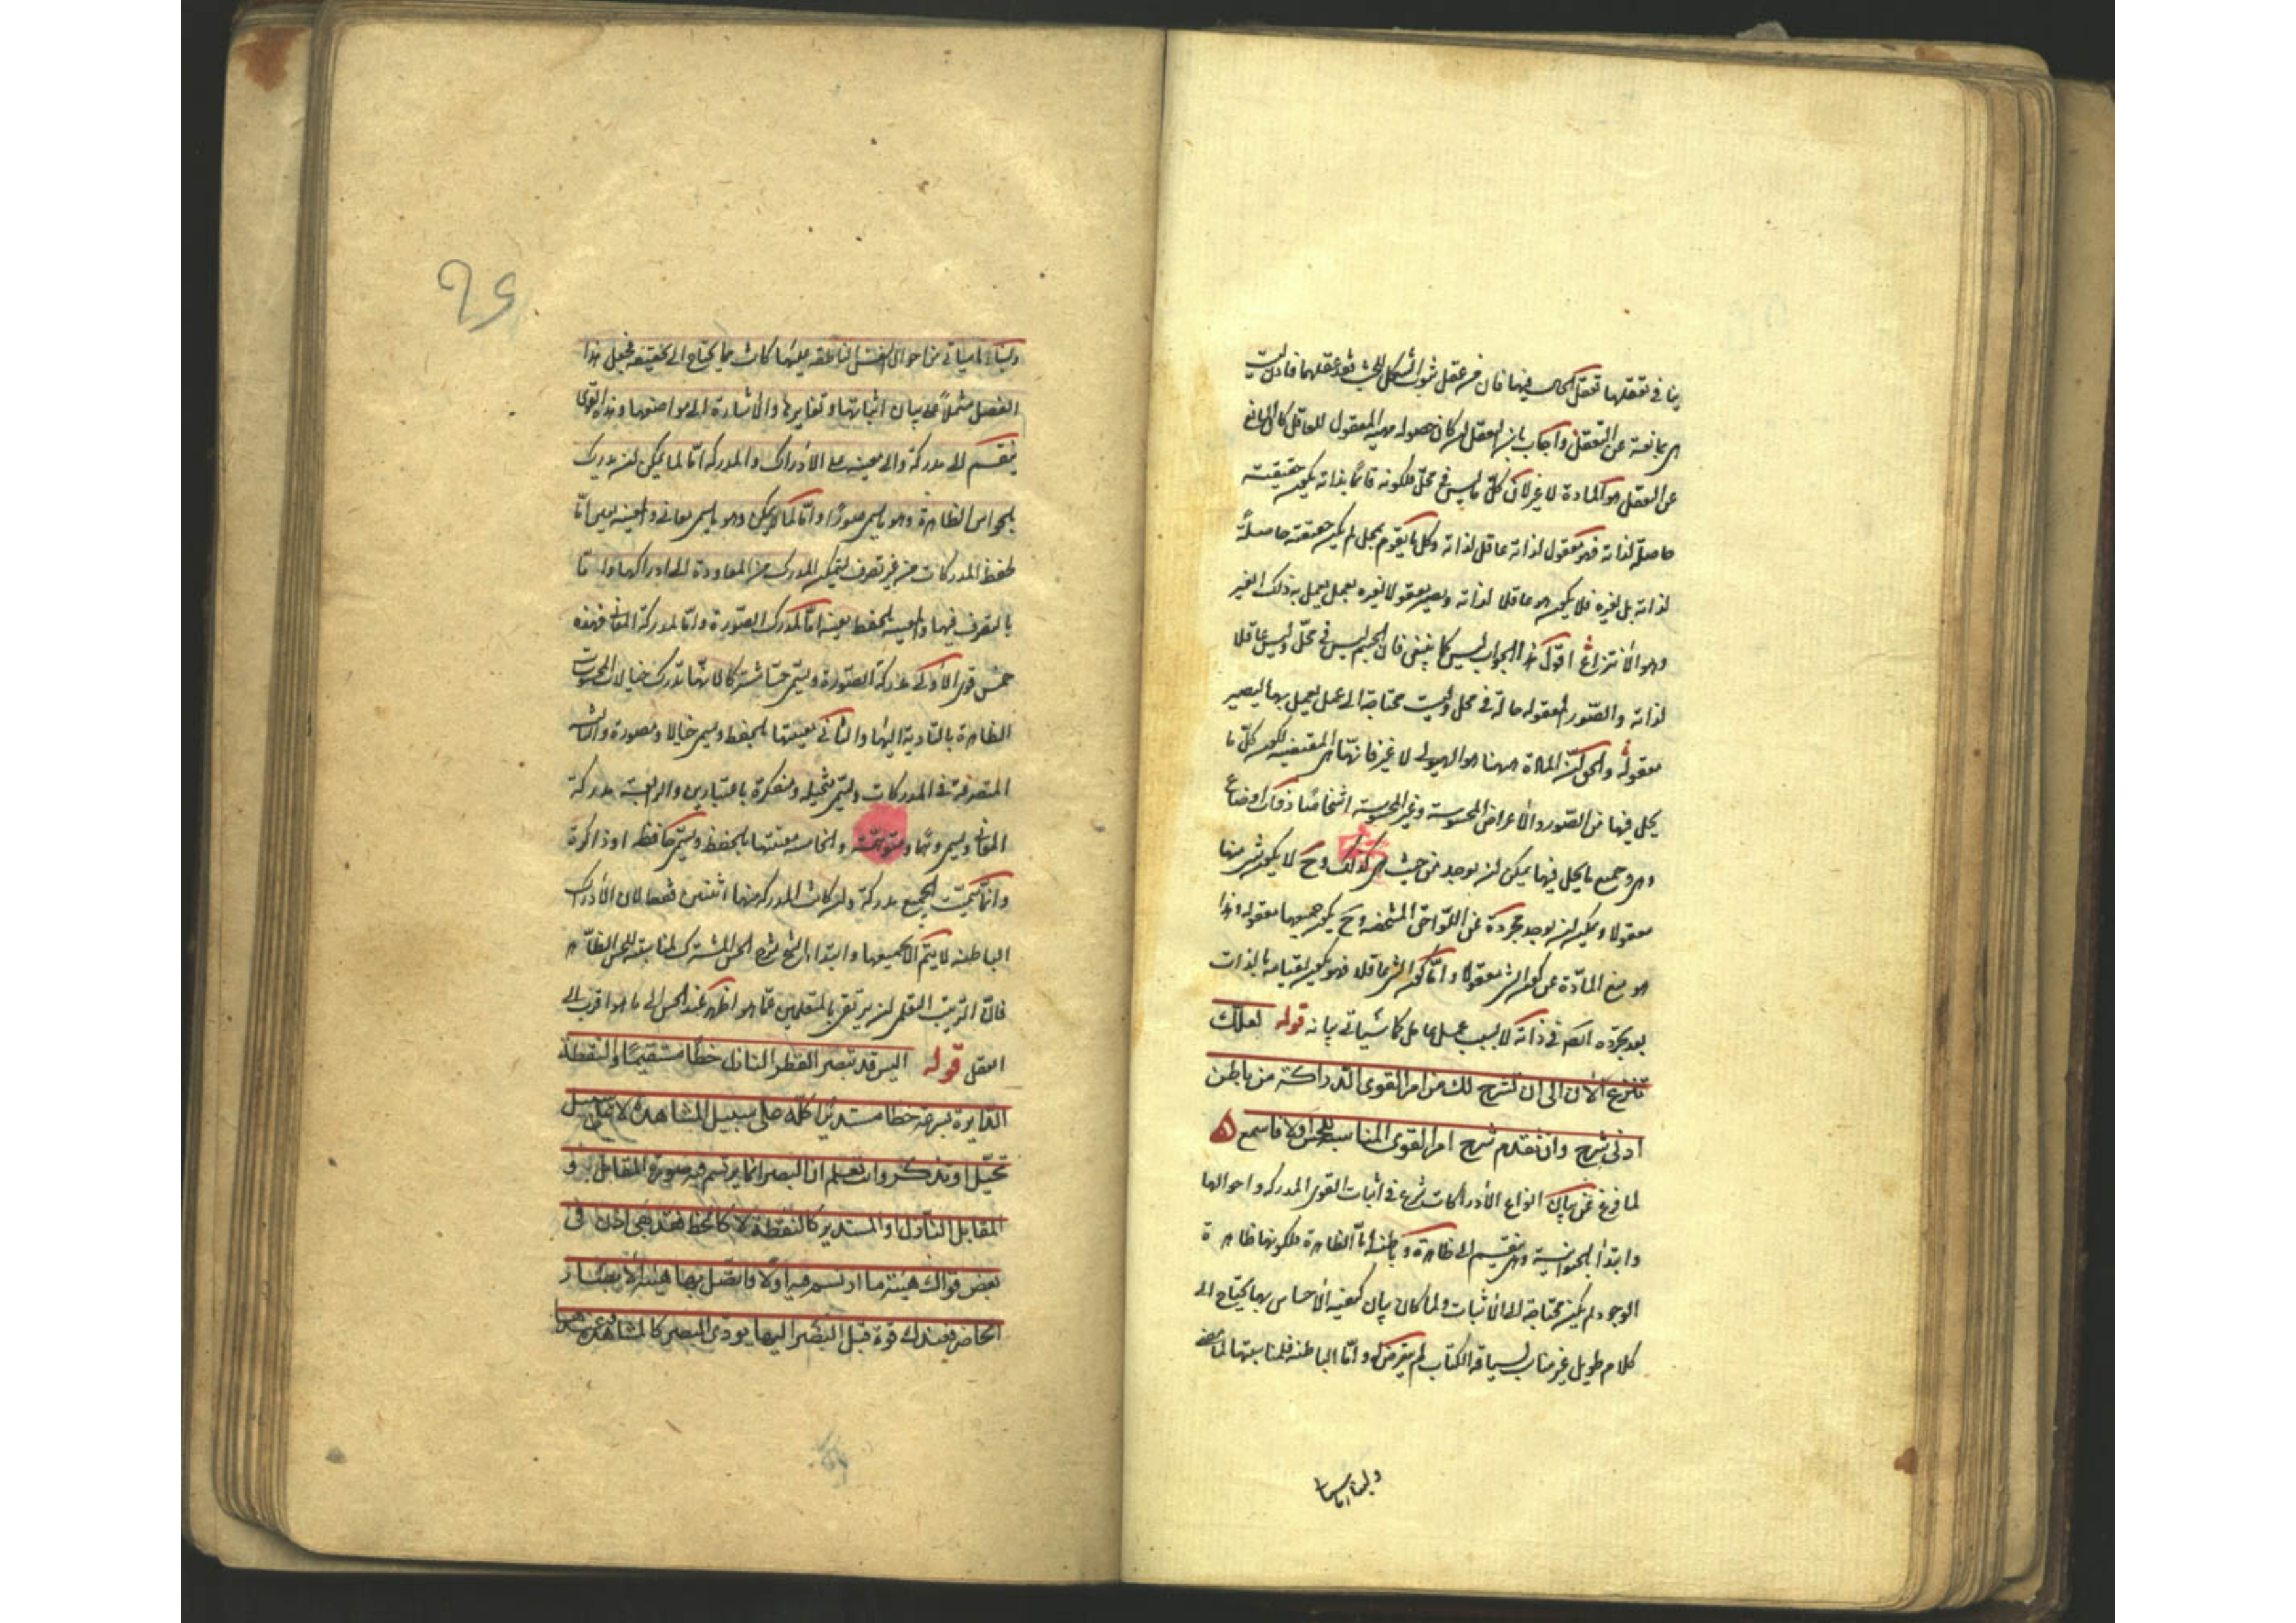 ينافى تعقلها تعقل الحال فيها فان من عقل ثبوت الشكل للجسم فقد عقلهما فاذن ليست
هى بمانعة عن التعقل واجاب بان التعقل لما كان حصول مهية المعقول للعاقل كان المانع
عن التعقل هو المادة لا غير لان كل ما ليس فى محل فلكونه قائما بذاته يكون حقيقته
حاصلة لذاته فهو معقول لذاته عاقل لذاته وكل ما يقوم بمحل لم يكن حقيقته حاصلة
لذاته بل لغيره فلا يكون هو عاقلا لذاته ويصير معقولا لغيره بعمل يعمل به ذلك الغير
وهو الانتزاع اقول هذا الجواب ليس كما ينبغى فان الجسم ليس فى محل وليس عاقلا
لذاته والصور المعقوله حالة فى محل وليست محتاجة الى عمل يعمل بها ليصير
معقولة والحق ان المادة ههنا هو الهيولى لا غير فانها هى المقتضيه لكون كل ما
يحل فيها من الصور والاعراض المحسوسة وغير المحسوسة اشخاصا ذوات اوضاع
وهى وجميع ما يحل فيها يمكن ان يوجد من حيث هى كذلك وح لا يكون شىء منها
معقولا ويمكن ان يوجد مجردة عن اللواحق المشخصه وح يكون جميعها معقوله وهذا
هو منع المادة عن كون الشىء معقولا واما كون الشىء عاقلا فهو يكون لقيامه بالذات
بعد تجرده التام فى ذاته لا بسبب عمل عامل كما سياتى بيانه قوله لعلك
تنزع الآن الى ان نشرح لك من امر القوى الدراكة من باطن
ادنى شرح وان نقدم شرح امر القوى المناسبة للحس اولا فاسمع ه
لما فرغ عن بيان انواع الادراكات شرع فى اثبات القوى المدركه واحوالها
وابتدأ بالحيوانية وهى ينقسم الى ظاهرة وباطنه اما الظاهرة فلكونها ظاهرة
الوجود لم يكن محتاجة الى الاثبات ولما كان بيان كيفية الاحساس بها يحتاج الى
كلام طويل غير مناسب لسياقة الكتاب لم يتعرض له واما الباطنه فلمناسبتها لما مضى
ولبناء ما سياتى
٩٤
ولبناء ما سياتى من احوال النفس الناطقه عليها كانت مما يحتاج الى تحقيقه فجعل هذا
الفصل مشتملا على بيان اثباتها وتغايرها والاشارة الى مواضعها وهذه القوى
ينقسم الى مدركة والى معينه على الادراك والمدركه اما لما يمكن ان يدرك
بالحواس الظاهرة وهو ما يسمى صورا واما لما لا يمكن وهو ما يسمى معانى والمعينه يعين اما
لحفظ المدركات من غير تصرف ليتمكن المدرك من المعاودة الى ادراكها واما
بالتصرف فيها والمعينه بالحفظ معينه اما لمدرك الصورة واما لمدركة المعانى فهذه
خمس قوى الاولى مدركة الصورة ويسمى حسا مشتركا لانها تدرك خيالات المحسوسات
الظاهرة بالتادية اليها والثانى معينتها بالحفظ ويسمى خيالا ومصورة والثالث
المتصرفة فى المدركات ويسمى متخيلة ومفكرة باعتبارين والرابعة مدركة
المعانى ويسمى وهما ومتوهمة والخامسه معينتها بالحفظ ويسمى حافظه او ذاكرة
وانما سميت الجميع مدركة وان كانت المدركه منها اثنتين فقط لان الادراك
الباطنه لا يتم الا بجميعها وابتدا بالشيخ بشرح الحس المشترك لمناسبته للحس الظاهر
فان الترتيب التعليمى ان يرتقى بالمتعلمين عما هو اظهر عند الحس الى ما هو اقرب الى
العقل قوله اليس قد تبصر القطر النازل خطا مستقيما والنقطة
الدايرة بسرعة خطا مستديرا كله على سبيل المشاهدة لا على سبيل
تخيل او تذكر وانت تعلم ان البصر انما يرتسم فيه صورة المقابل و
المقابل النازل او المستدير كالنقطة لا كالخط فقد بقى اذن فى
بعض قواك هيئة ما ارتسم فيه اولا واتصل بها هيئة الابصار
الحاضر فعندك قوة قبل البصر اليها يودى البصر كالمشاهدة وعندها